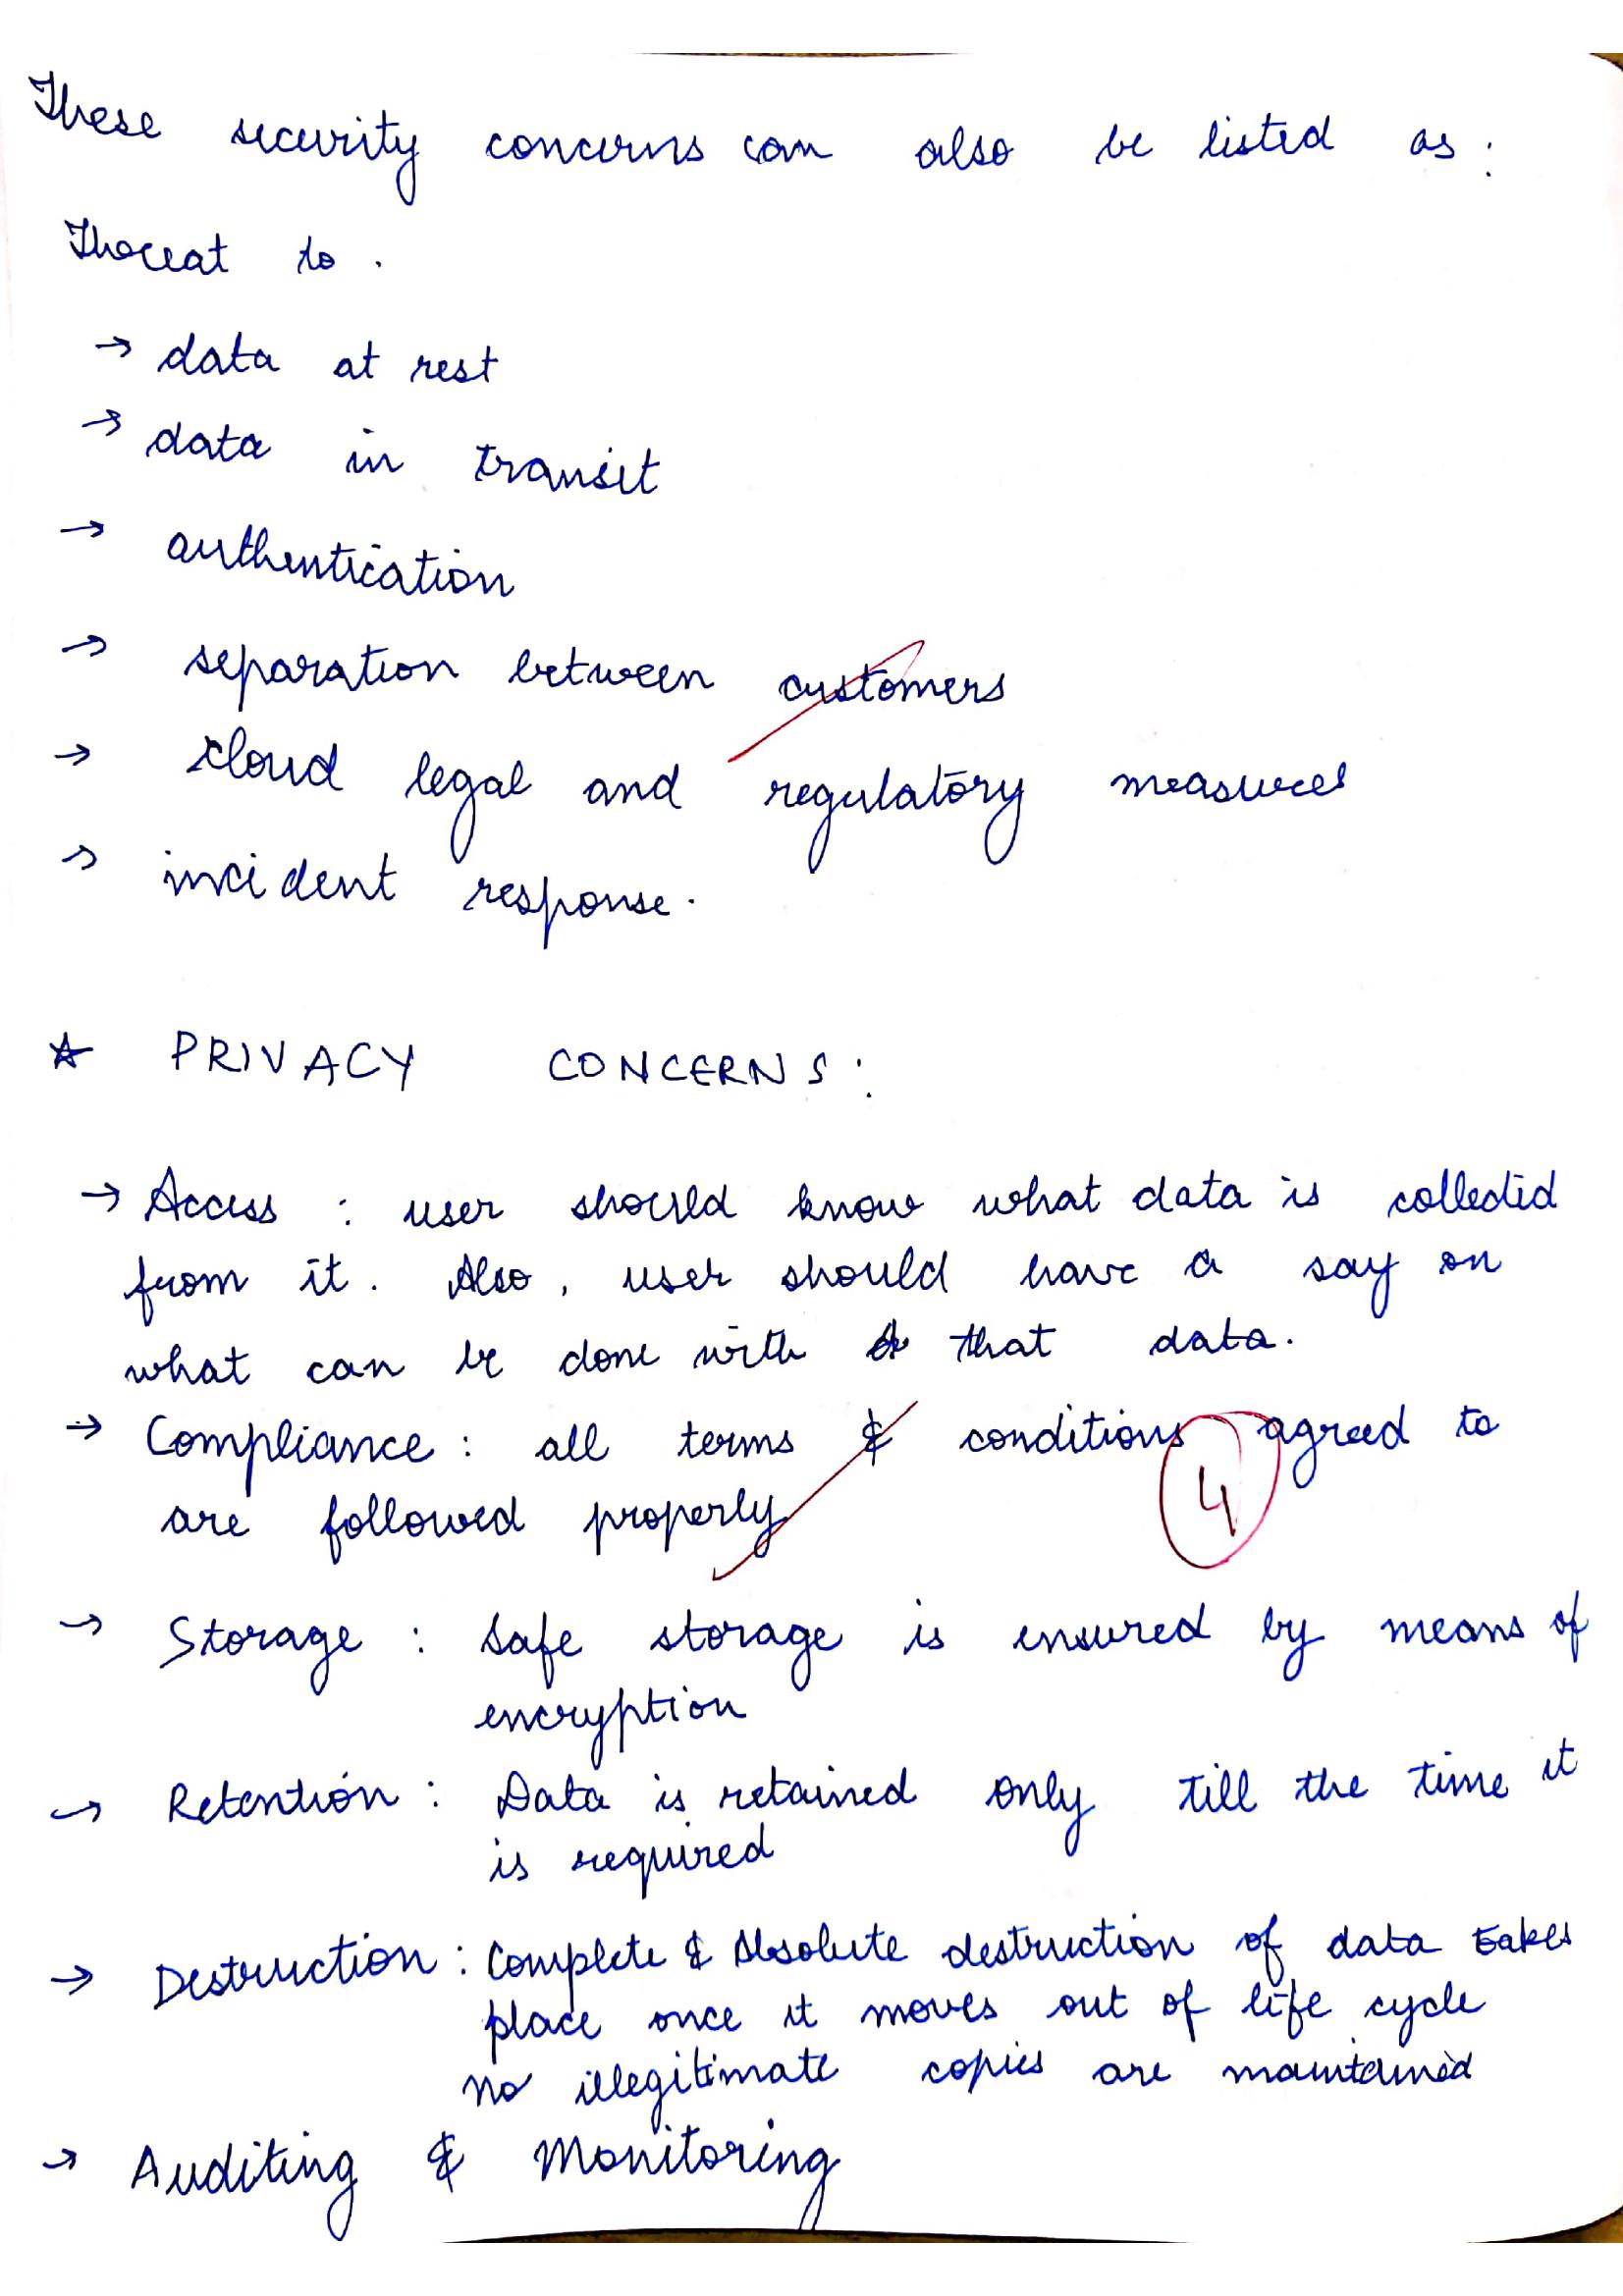 These security concerns can also be listed as :
Threat to .
→ data at rest
→ data in transit
→ authentication
→ separation between customers
→ cloud legal and regulatory measures
→ incident response.
☆ PRIVACY CONCERNS :
→ Access : user should know what data is collected
from it. Also, user should have a say on
what can be done with that data.
→ Compliance : all terms & conditions agreed to
are followed properly
4
→ Storage : Safe storage is ensured by means of
encryption
→ Retention : Data is retained only till the time it
is required
→ Destruction : Complete & Absolute destruction of data takes
place once it moves out of life cycle
no illegitimate copies are maintained
→ Auditing & Monitoring